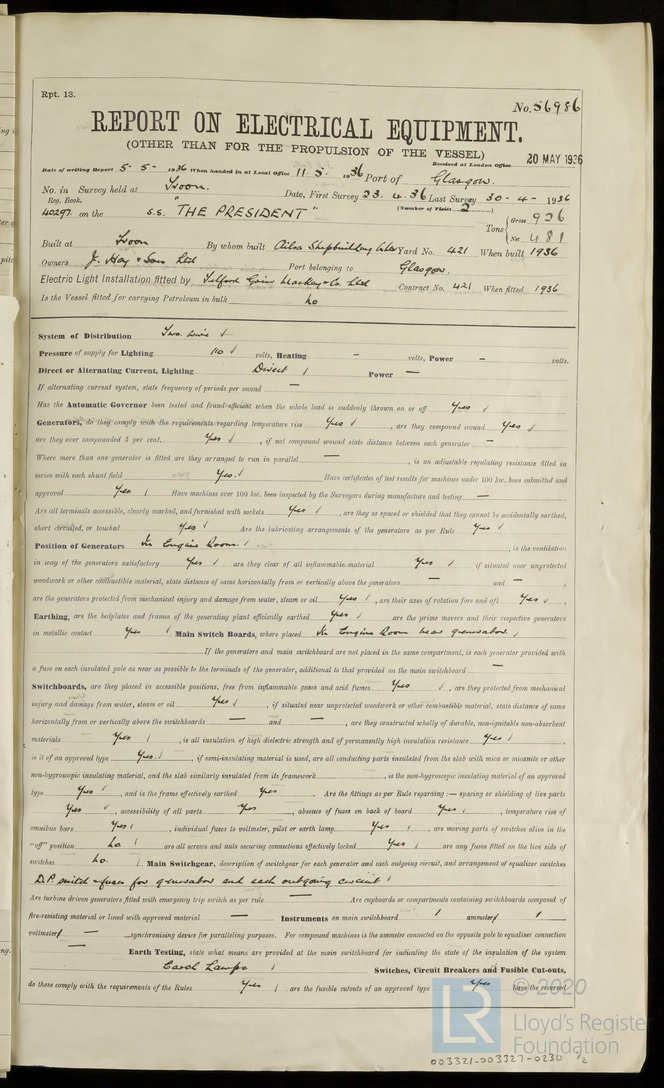 Rpt. 13.
No. 56986
REPORT ON ELECTRICAL EQUIPMENT.
(OTHER THAN FOR THE PROPULSION OF THE VESSEL)
Received at London Office 20 MAY 1936
Date of writing Report 5-5-1936 When handed in at Local Office 11.5.1936 Port of Glasgow.
No. in Survey held at Troon. Date, First Survey 23.4.36 Last Survey 30-4-1936
Reg. Book. (Number of Visits 2)
40297 on the S.S. "THE PRESIDENT" Tons { Gross 926
Net 481
Built at Troon By whom built Ailsa Shipbuilding Yard No. 421 When built 1936
Owners J. Hay & Sons Ltd Port belonging to Glasgow.
Electric Light Installation fitted by Telford Grier Mackay & Co. Ltd Contract No. 421 When fitted 1936
Is the Vessel fitted for carrying Petroleum in bulk No
System of Distribution Two wire ✓
Pressure of supply for Lighting 110 ✓ volts, Heating - volts, Power - volts.
Direct or Alternating Current, Lighting Direct Power —
If alternating current system, state frequency of periods per second —
Has the Automatic Governor been tested and found efficient when the whole load is suddenly thrown on or off Yes ✓
Generators, do they comply with the requirements regarding temperature rise Yes ✓, are they compound wound Yes ✓
are they over compounded 5 per cent. Yes ✓, if not compound wound state distance between each generator —
Where more than one generator is fitted are they arranged to run in parallel —, is an adjustable regulating resistance fitted in
series with each shunt field Yes. ✓ Have certificates of test results for machines under 100 kw. been submitted and
approved Yes Have machines over 100 kw. been inspected by the Surveyors during manufacture and testing —
Are all terminals accessible, clearly marked, and furnished with sockets Yes ✓, are they so spaced or shielded that they cannot be accidentally earthed,
short circuited, or touched Yes ✓ Are the lubricating arrangements of the generators as per Rule Yes ✓
Position of Generators In Engine Room. , is the ventilation
in way of the generators satisfactory Yes ✓ are they clear of all inflammable material Yes ✓ if situated near unprotected
woodwork or other combustible material, state distance of same horizontally from or vertically above the generators — and —,
are the generators protected from mechanical injury and damage from water, steam or oil Yes, are their axes of rotation fore and aft Yes ✓,
Earthing, are the bedplates and frames of the generating plant efficiently earthed Yes ✓ are the prime movers and their respective generators
in metallic contact Yes Main Switch Boards, where placed In Engine Room near generator.
If the generators and main switchboard are not placed in the same compartment, is each generator provided with
a fuse on each insulated pole as near as possible to the terminals of the generator, additional to that provided on the main switchboard —
Switchboards, are they placed in accessible positions, free from inflammable gases and acid fumes Yes ✓, are they protected from mechanical
injury and damage from water, steam or oil Yes ✓, if situated near unprotected woodwork or other combustible material, state distance of same
horizontally from or vertically above the switchboards — and —, are they constructed wholly of durable, non-ignitable non-absorbent
materials Yes, is all insulation of high dielectric strength and of permanently high insulation resistance Yes ✓,
is it of an approved type Yes ✓, if semi-insulating material is used, are all conducting parts insulated from the slab with mica or micanite or other
non-hygroscopic insulating material, and the slab similarly insulated from its framework , is the non-hygroscopic insulating material of an approved
type Yes, and is the frame effectively earthed Yes Are the fittings as per Rule regarding :— spacing or shielding of live parts
Yes ✓, accessibility of all parts Yes, absence of fuses on back of board Yes, temperature rise of
omnibus bars Yes, individual fuses to voltmeter, pilot or earth lamp Yes, are moving parts of switches alive in the
"off" position No are all screws and nuts securing connections effectively locked Yes ✓ are any fuses fitted on the live side of
switches No. Main Switchgear, description of switchgear for each generator and each outgoing circuit, and arrangement of equalizer switches
D.P. switch & fuses for generator and each outgoing circuit
Are turbine driven generators fitted with emergency trip switch as per rule — Are cupboards or compartments containing switchboards composed of
fire-resisting material or lined with approved material — Instruments on main switchboard 1 ammeter 1
voltmeter — synchronising device for paralleling purposes. For compound machines is the ammeter connected on the opposite pole to equaliser connection
— Earth Testing, state what means are provided at the main switchboard for indicating the state of the insulation of the system
Earth Lamps Switches, Circuit Breakers and Fusible Cut-outs,
do these comply with the requirements of the Rules Yes are the fusible cutouts of an approved type Yes have the reversed
LR © 2020
Lloyd's Register
Foundation
003321-003327-0230 1/2